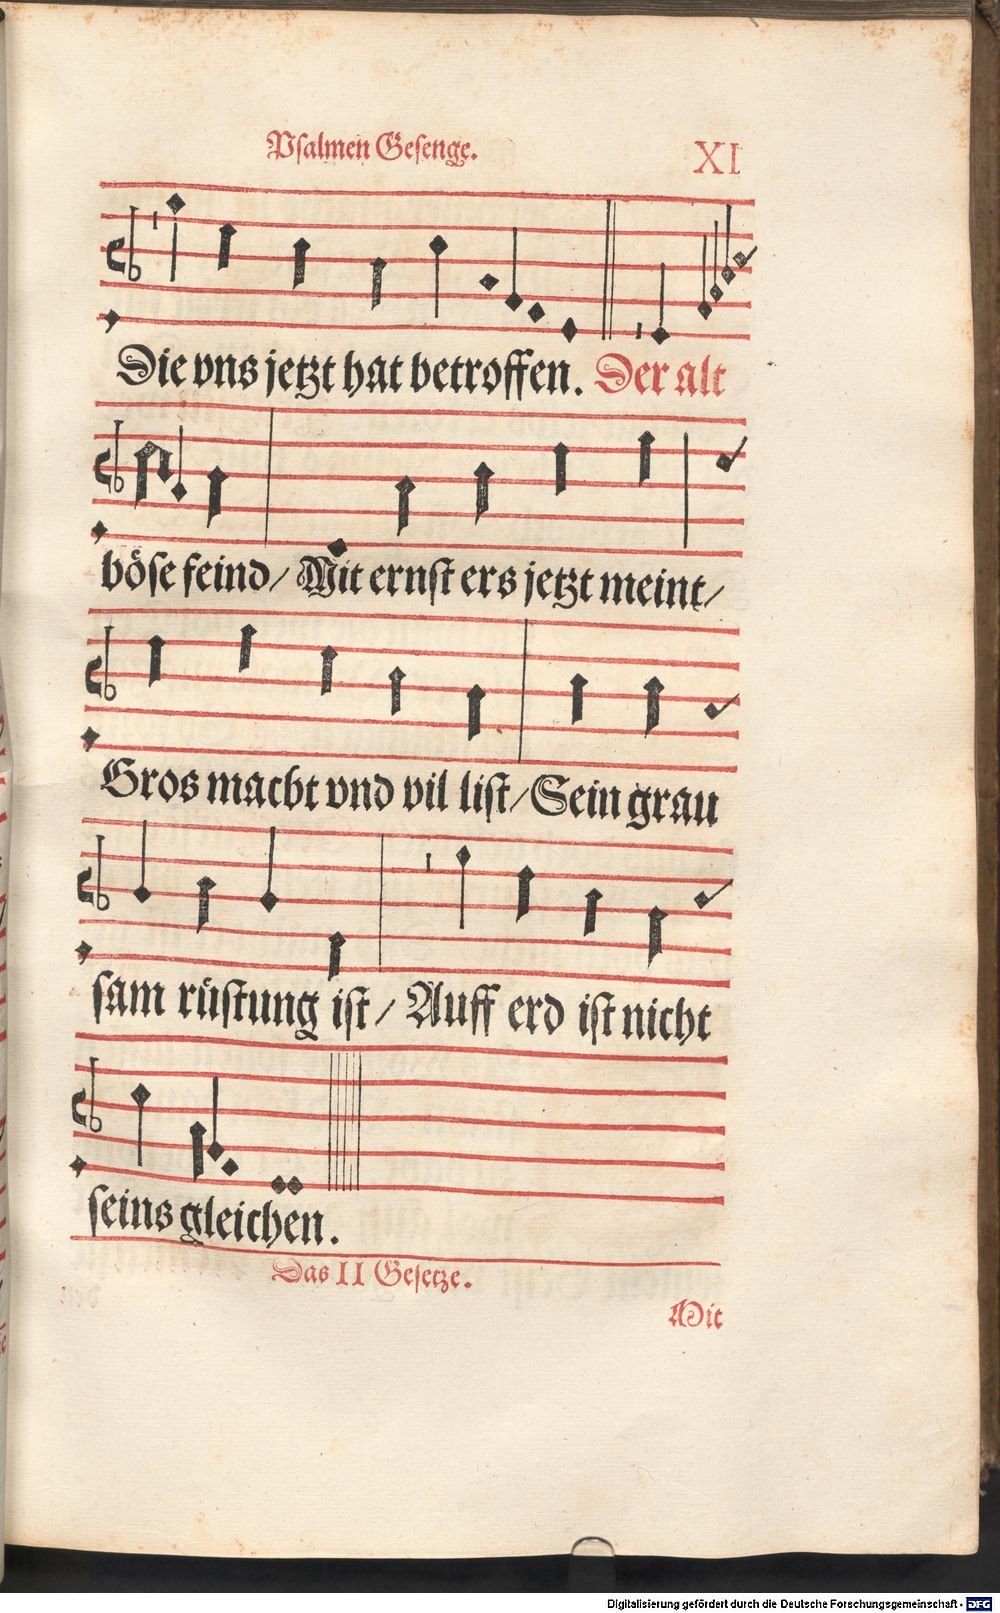 Psalmen Gesenge.
XI
Die vns jetzt hat betroffen. Der alt
böse feind/ Mit ernst ers jetzt meint/
Gros macht vnd vil list/ Sein grau
sam rüstung ist/ Auff erd ist nicht
seins gleichen.
Das II Gesetze.
Mit
Digitalisierung gefördert durch die Deutsche Forschungsgemeinschaft - DFG